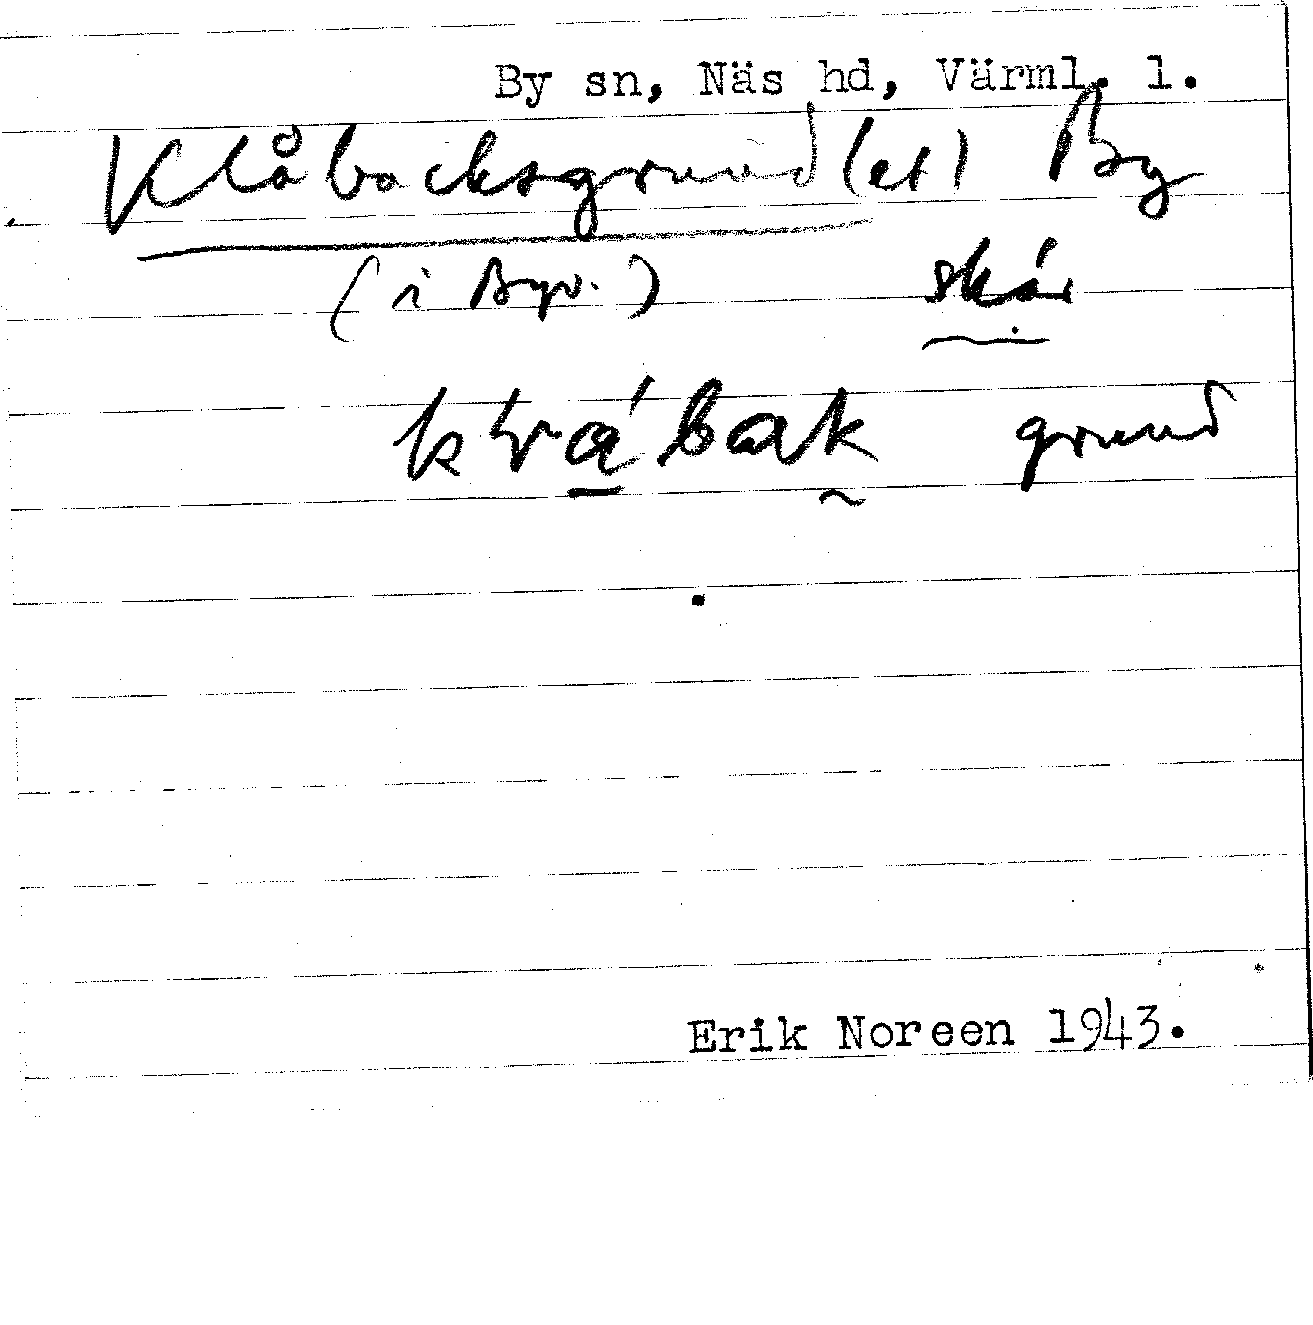 By sn, Näs hd, Värml. l.
Klåbocksgrund(et) By
(i Byv.) skär
grund
Erik Noreen 1943.